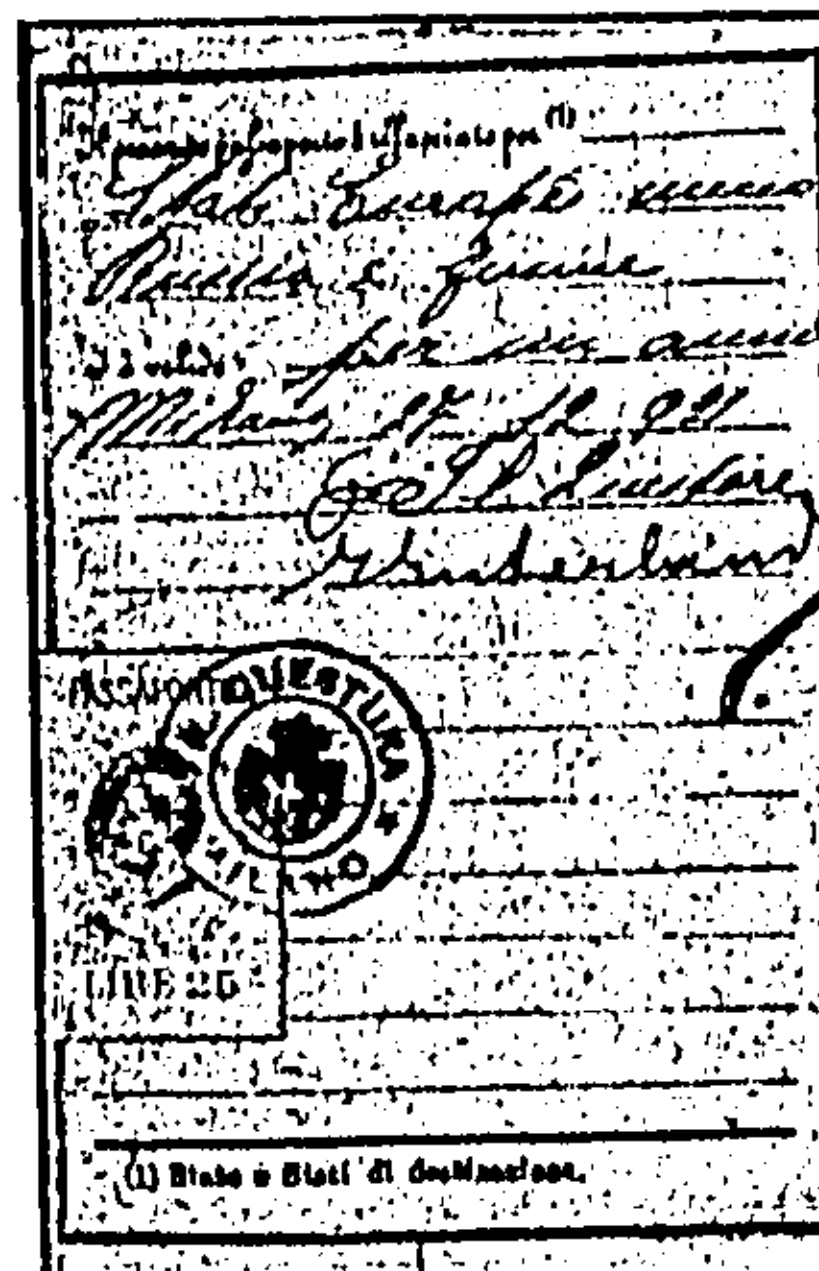 presente passaporto è rilasciato per (1)
Stati Europa meno
Russia e
ed è valido per un anno
Milano 27 12 921
Il Questore
R. QUESTURA
MILANO
LIRE 25
(1) Stato o Stati di destinazione.